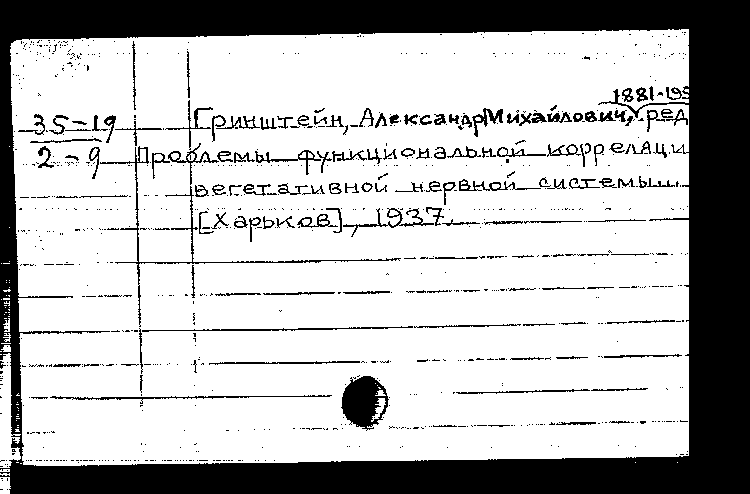 1881-195
35-19 Гринштейн, Александр Михайлович, ред
2-9 Проблемы функциональной корреляци
вегетативной нервной системы...
[Харьков], 1937.